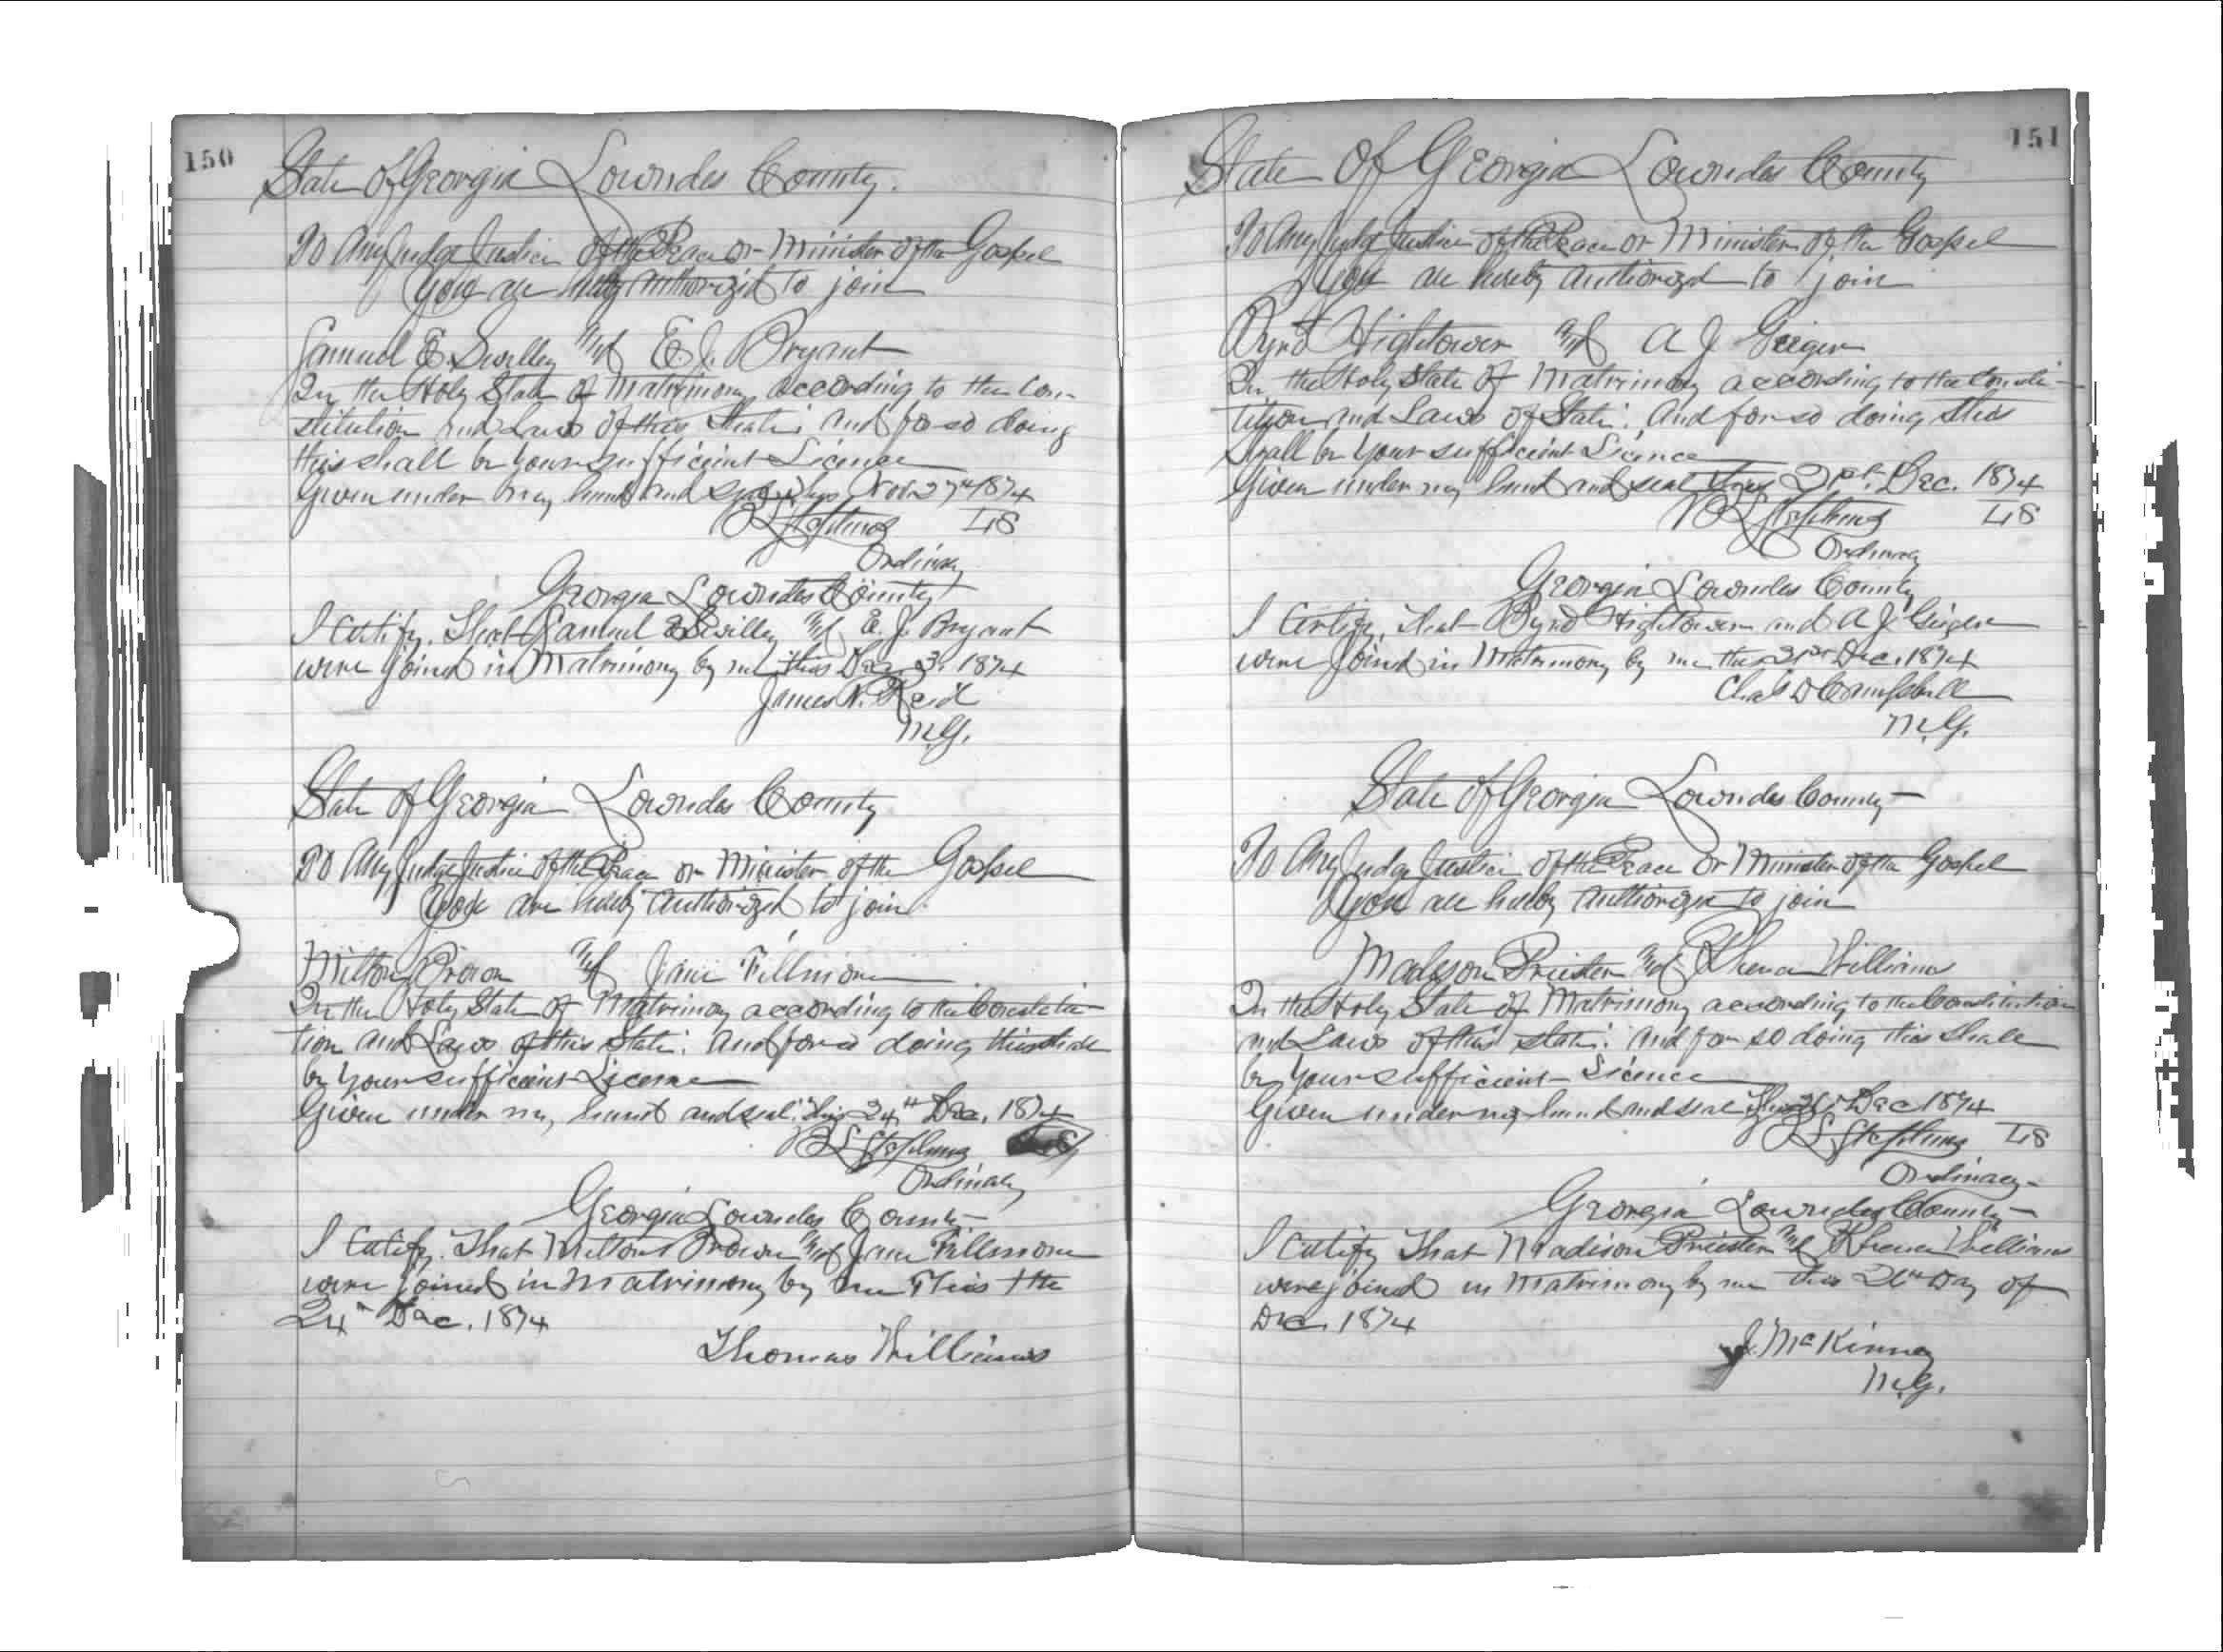 150
State of Georgia Lowndes County.
To Any Judge Justice of the Peace or Minister of the Gospel
You are hereby Authorized to join
Samuel E. Swilley and E. J. Bryant
In the Holy State of Matrimony according to the Con-
stitution and Laws of this State; and for so doing
this shall be your sufficient License
Given under my hand and seal this Nov 27th 1874
Stephens LS
Ordinary
Georgia Lowndes County
I Certify. That Samuel E Swilley and E. J. Bryant
were joined in Matrimony by me this Dec 3. 1874
James N. Reid
M.G.
State of Georgia Lowndes County
To Any Judge Justice of the Peace or Minister of the Gospel
You are hereby authorized to join
Milton Brown and Jane Fillmore
In the Holy State of Matrimony according to the Constitu-
tion and Laws of this State; and for so doing this shall
be your sufficient License
Given under my hand and seal. this 24th Dec. 1874
Stephens
Ordinary
Georgia Lowndes County
I Certify. That Milton Brown and Jane Fillmore
were joined in Matrimony by me This the
24th Dec. 1874
Thomas Williams
151
State Of Georgia Lowndes County
To Any Judge Justice of the Peace or Minister of the Gospel
You are hereby authorized to join
Byrd Hightower and A J Geiger
In the Holy State of Matrimony according to the Consti-
tution and Laws of State; And for so doing this
shall be your sufficient License
Given under my hand and seal this 21st Dec. 1874
Stephens LS
Ordinary
Georgia Lowndes County
I Certify, that Byrd Hightower and A J Geiger
were Joined in Matrimony by me the 21st Dec. 1874
Chas D Campbell
M.G.
State of Georgia Lowndes County
To Any Judge Justice of the Peace Or Minister of the Gospel
You are hereby Authorized to join
Madison Priester and Rhena Williams
In the Holy State of Matrimony according to the Constitution
and Laws of this State; and for so doing this shall
be your sufficient License
Given under my hand and seal this Dec 1874
Stephens LS
Ordinary
Georgia Lowndes County
I Certify That Madison Priester and Rhena Williams
were joined in Matrimony by me this 26th Day of
Dec. 1874
J. McKinney
M.G.